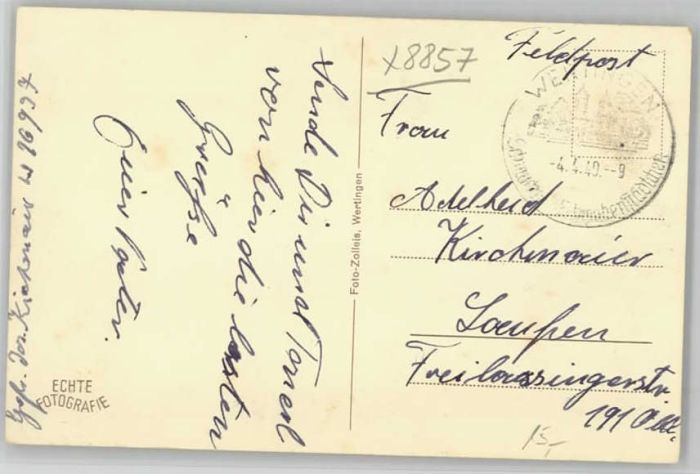 Feldpost
x8857
WERTINGEN
-4.4.40.--9
Frau
Adelheid
Kirchmaier
Laufen
Freilassingerstr.
191 Obb.
Sende Dir und
von hier die besten
Grüße
Euer Vater.
Gefr. Jos. Kirchmaier
Foto-Zolleis, Wertingen
ECHTE
FOTOGRAFIE
15,-